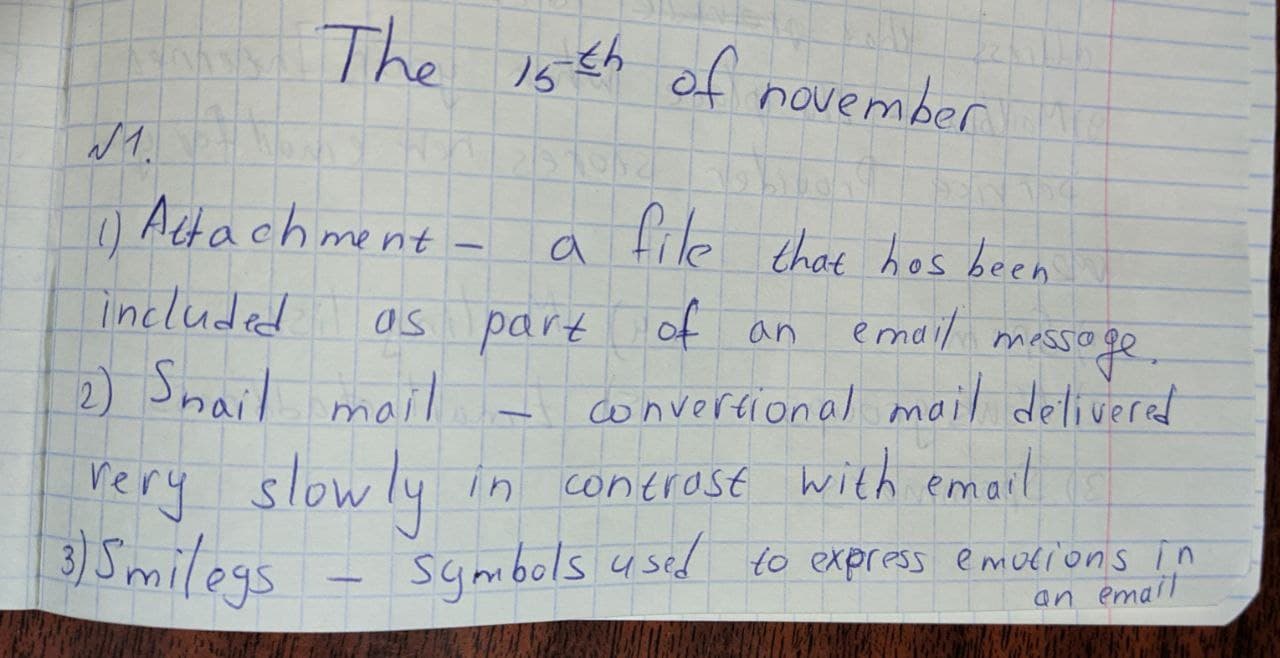 The 15th of november
№1.
1) Attachment - a file that has been
included as part of an email message.
2) Snail mail - convertional mail delivered
very slowly in contrast with email
3) Smilegs - symbols used to express emotions in
an email